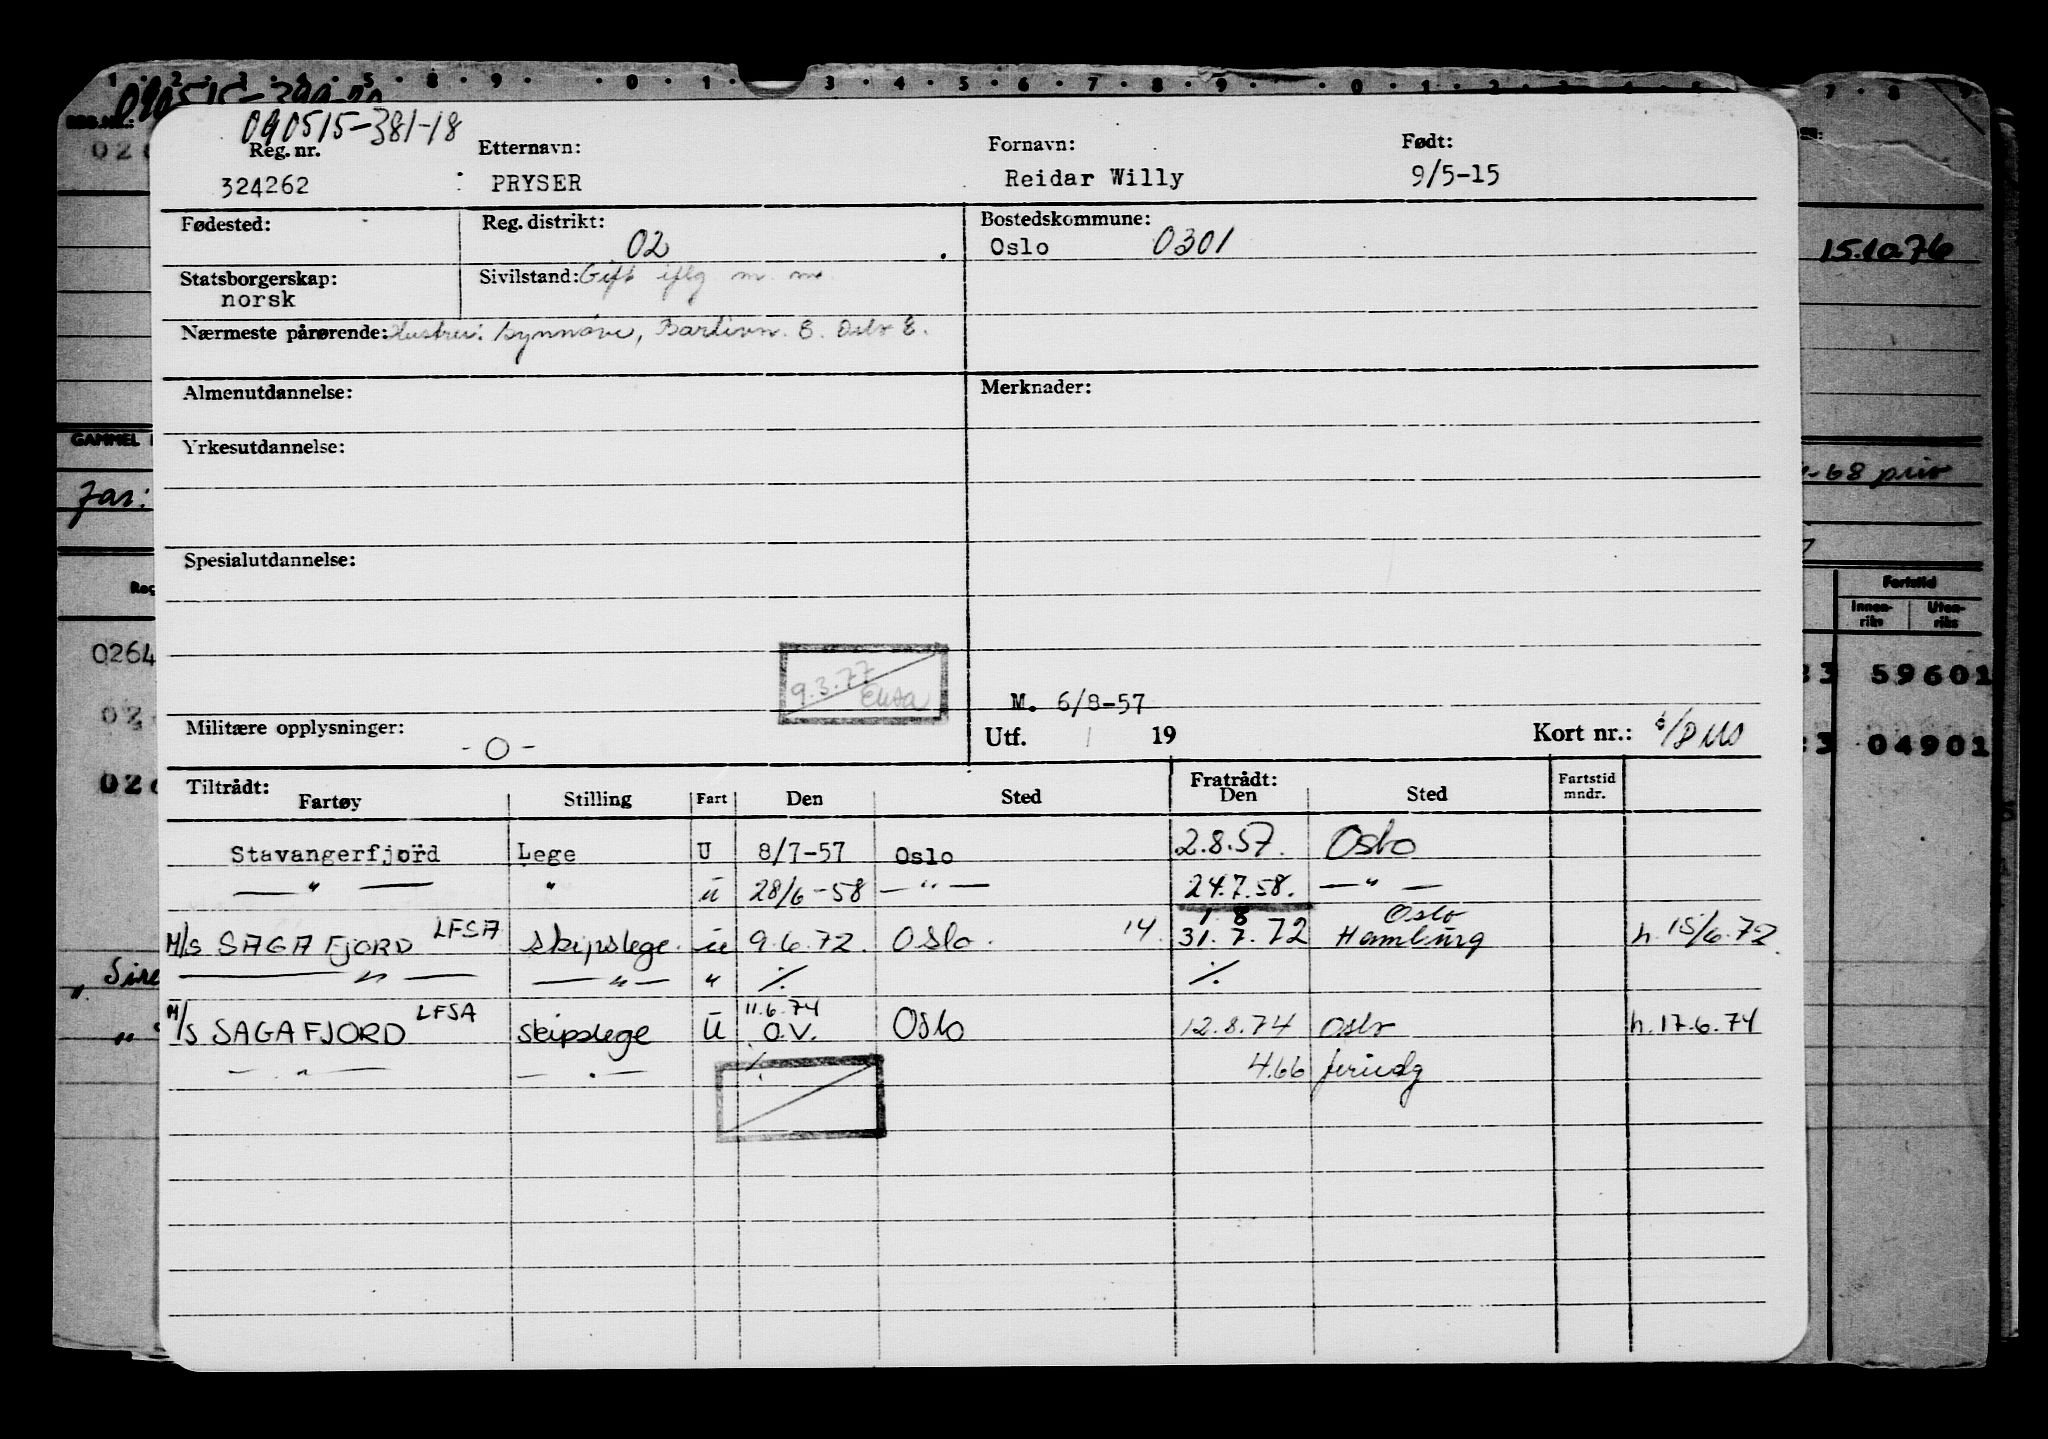 090515-381-18
Reg. nr. Etternavn: Fornavn: Født:
324262 PRYSER Reidar Willy 9/5-15
Fødested: Reg. distrikt: 02 Bostedskommune: Oslo 0301
Statsborgerskap: norsk Sivilstand: Gift iflg m. m.
Nærmeste pårørende: Hustru: Synnøve, E. Oslo E.
Almenutdannelse: Merknader:
Yrkesutdannelse:
Spesialutdannelse:
9.3.77
M. 6/8-57
Militære opplysninger: -0- Utf. / 19 Kort nr.:
Tiltrådt: Fratrådt:
Fartøy Stilling Fart Den Sted Den Sted Fartstid mndr.
Stavangerfjord Lege U 8/7-57 Oslo 2.8.57. Oslo
— " — " U 28/6-58 — " — 24.7.58. — " —
1 8 Oslo
M/S SAGAFJORD LFSA skipslege U 9.6.72. Oslo. 14. 31.7.72 Hamburg h. 15/6.72.
— " — — " — " ./. ./.
11.6.74
M/S SAGAFJORD LFSA skipslege U O.V. Oslo 12.8.74 Oslo h. 17.6.74
— " — — " — ./. 4.66 feriedg
15.10.76
GAMMEL
Far:
-68 priv
Fartstid
Innen-riks Uten-riks
0264
59601
04901